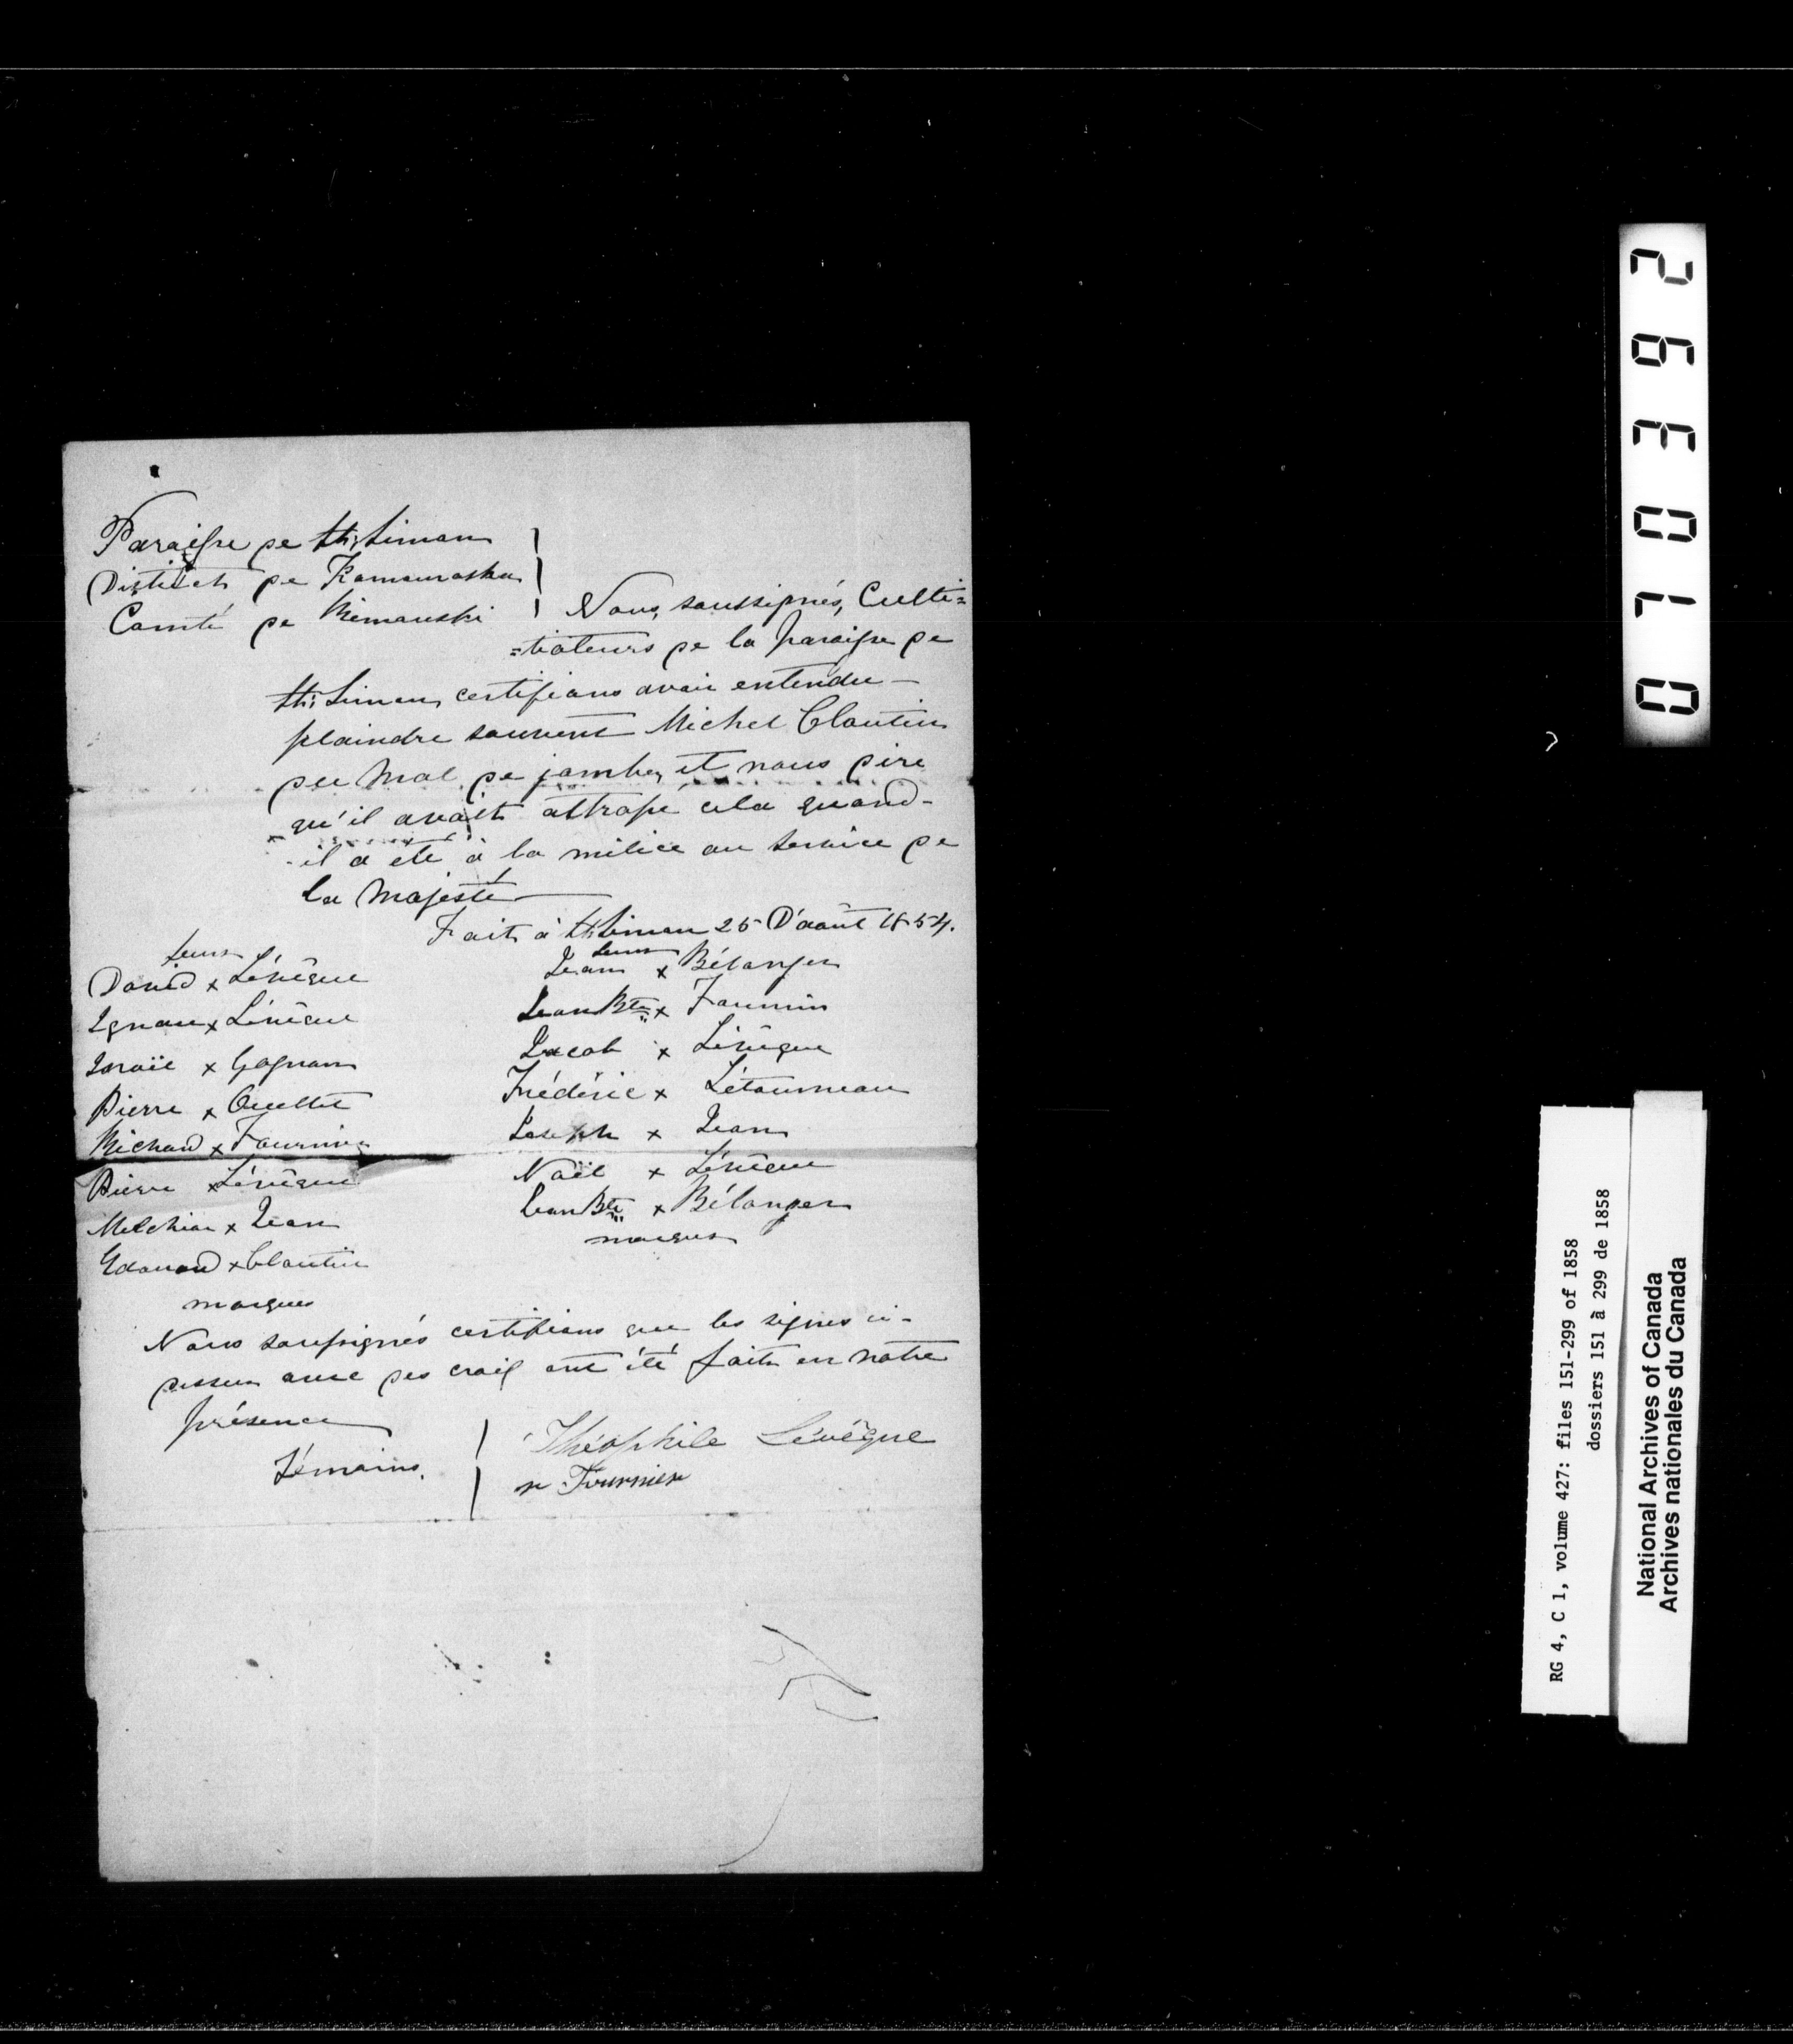 Paraisse de St. Simon
District de Kamouraska
Comté de Rimouski
Nous, soussignés, Culti=
=vateurs de la paraisse de
St. Simon, certifions avoir entendu
plaindre souvent Michel Cloutier
du mal de jambes, et nous dire
qu'il avait attrapé cela quand
il a été à la milice au service de
la Majesté
Fait à St. Simon 25 D'août 1854.
leurs
David x Lévêque
Ignace x Lévêque
Israïe x Gagnon
Pierre x Ouellet
Richard x Fournier
Pierre x Lévêque
Melchior x Jean
Edouard x Cloutier
marques
leurs
Jean x Bélanger
Jean Bte x Fournier
Jacob x Lévêque
Frédéric x Létourneau
Joseph x Jean
Noël x Lévêque
Jean Bte x Bélanger
marques
Nous soussignés certifions que les signes ci-
dessus avec des croix ont été faits en notre
présence
Témoins.
Théophile Lévêque
n Fournier
070392
RG 4, C 1, volume 427: files 151-299 of 1858
dossiers 151 à 299 de 1858
National Archives of Canada
Archives nationales du Canada